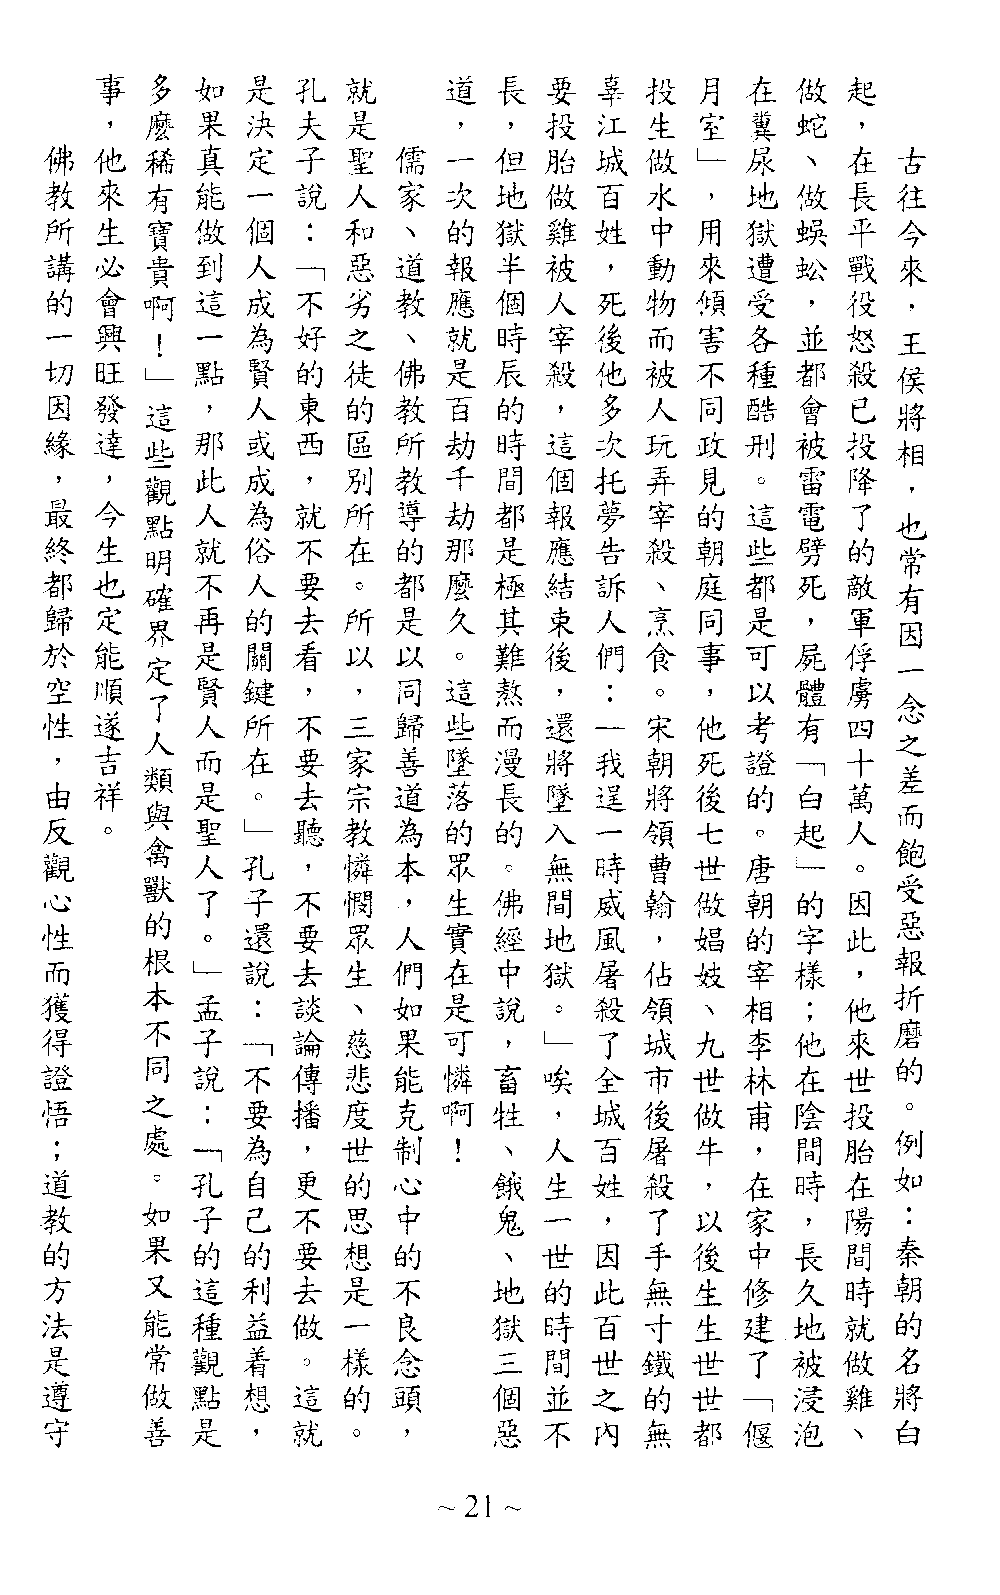 古往今來，王侯將相，也常有因一念之差而飽受惡報折磨的。例如：秦朝的名將白
起，在長平戰役怒殺已投降了的敵軍俘虜四十萬人。因此，他來世投胎在陽間時就做雞、
做蛇、做蜈蚣，並都會被雷電劈死，屍體有「白起」的字樣；他在陰間時，長久地被浸泡
在糞尿地獄遭受各種酷刑。這些都是可以考證的。唐朝的宰相李林甫，在家中修建了「偃
月室」，用來傾害不同政見的朝庭同事，他死後七世做娼妓、九世做牛，以後生生世世都
投生做水中動物而被人玩弄宰殺、烹食。宋朝將領曹翰，佔領城市後屠殺了手無寸鐵的無
辜江城百姓，死後他多次托夢告訴人們：「我逞一時威風屠殺了全城百姓，因此百世之內
要投胎做雞被人宰殺，這個報應結束後，還將墜入無間地獄。」唉，人生一世的時間並不
長，但地獄半個時辰的時間都是極其難熬而漫長的。佛經中說，畜牲、餓鬼、地獄三個惡
道，一次的報應就是百劫千劫那麼久。這些墜落的眾生實在是可憐啊！
儒家、道教、佛教所教導的都是以同歸善道為本，人們如果能克制心中的不良念頭，
就是聖人和惡劣之徒的區別所在。所以，三家宗教憐憫眾生、慈悲度世的思想是一樣的。
孔夫子說：「不好的東西，就不要去看，不要去聽，不要去談論傳播，更不要去做。這就
是決定一個人成為賢人或成為俗人的關鍵所在。」孔子還說：「不要為自己的利益着想，
如果真能做到這一點，那此人就不再是賢人而是聖人了。」孟子說：「孔子的這種觀點是
多麼稀有寶貴啊！」這些觀點明確界定了人類與禽獸的根本不同之處。如果又能常做善
事，他來生必會興旺發達，今生也定能順遂吉祥。
佛教所講的一切因緣，最終都歸於空性，由反觀心性而獲得證悟；道教的方法是遵守
~21~